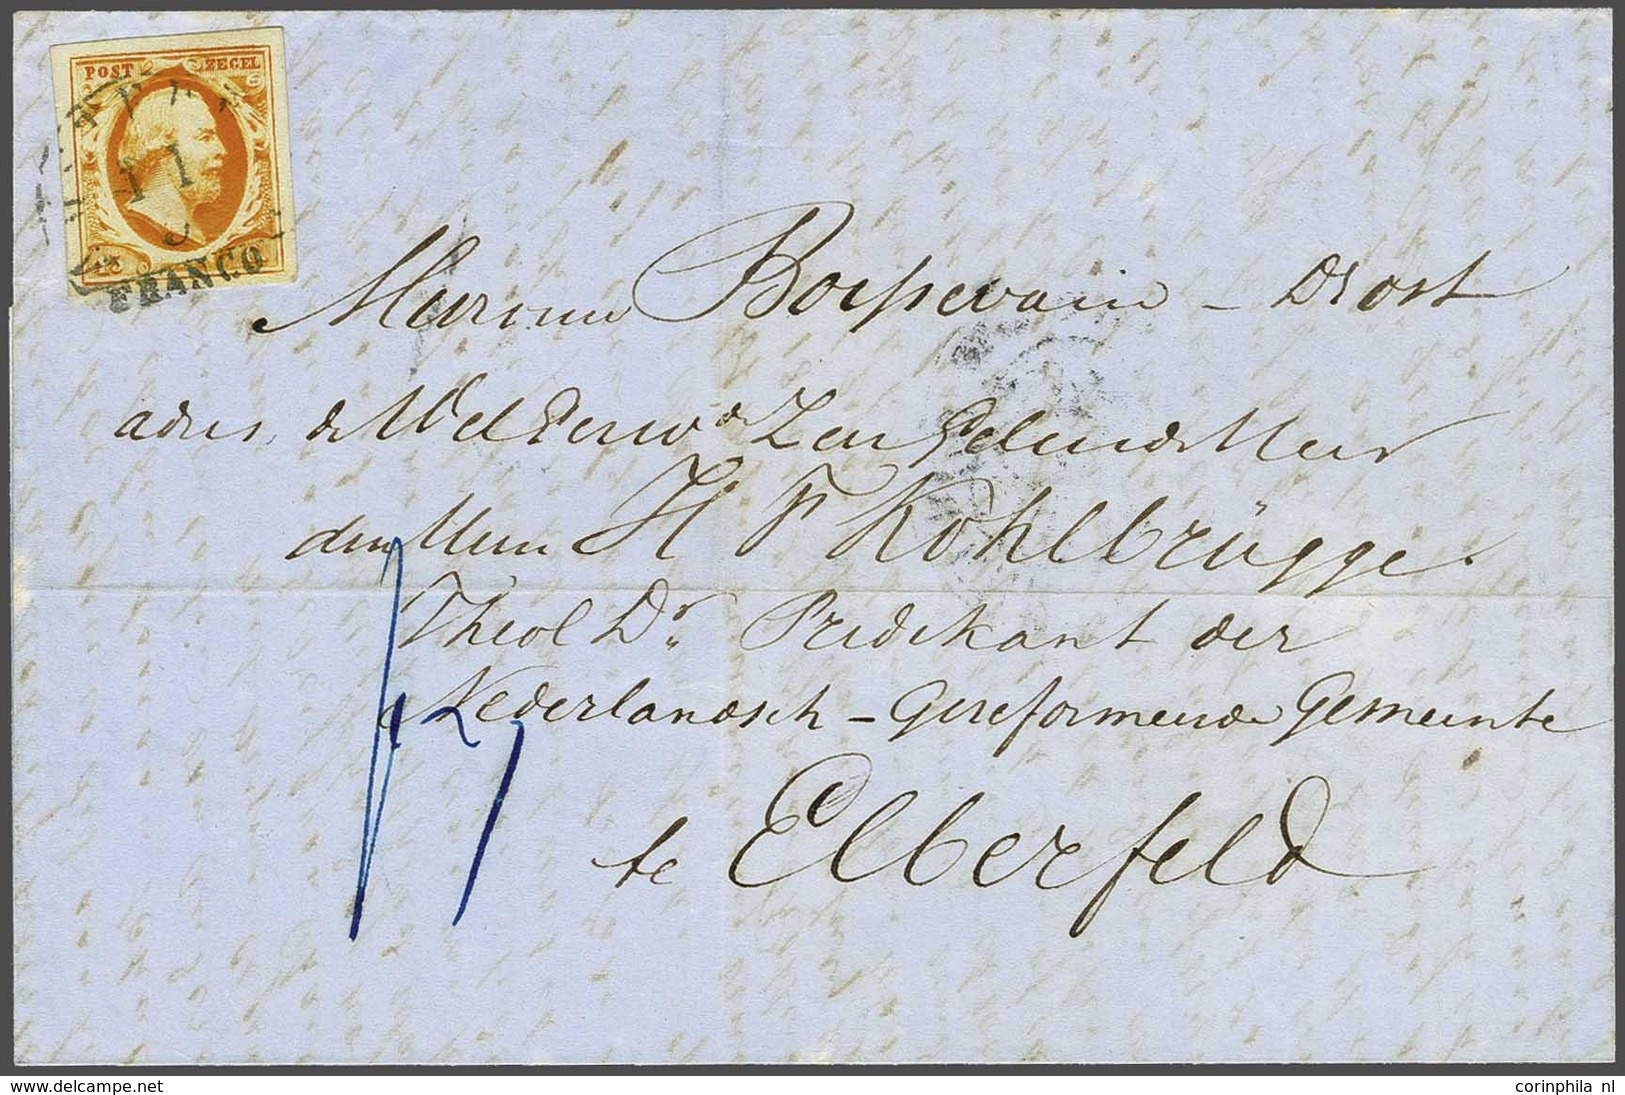 POST ZEGEL
11
FRANCO
Mevrouw Boissevain - Drost
adres de WelEerw de Zeer Geleerde Heer
den Heer H F Kohlbrügge.
Theol Dr. Predikant der
Nederlandsch - Gereformeerde Gemeente
te Elberfeld
www.delcampe.net
corinphila nl